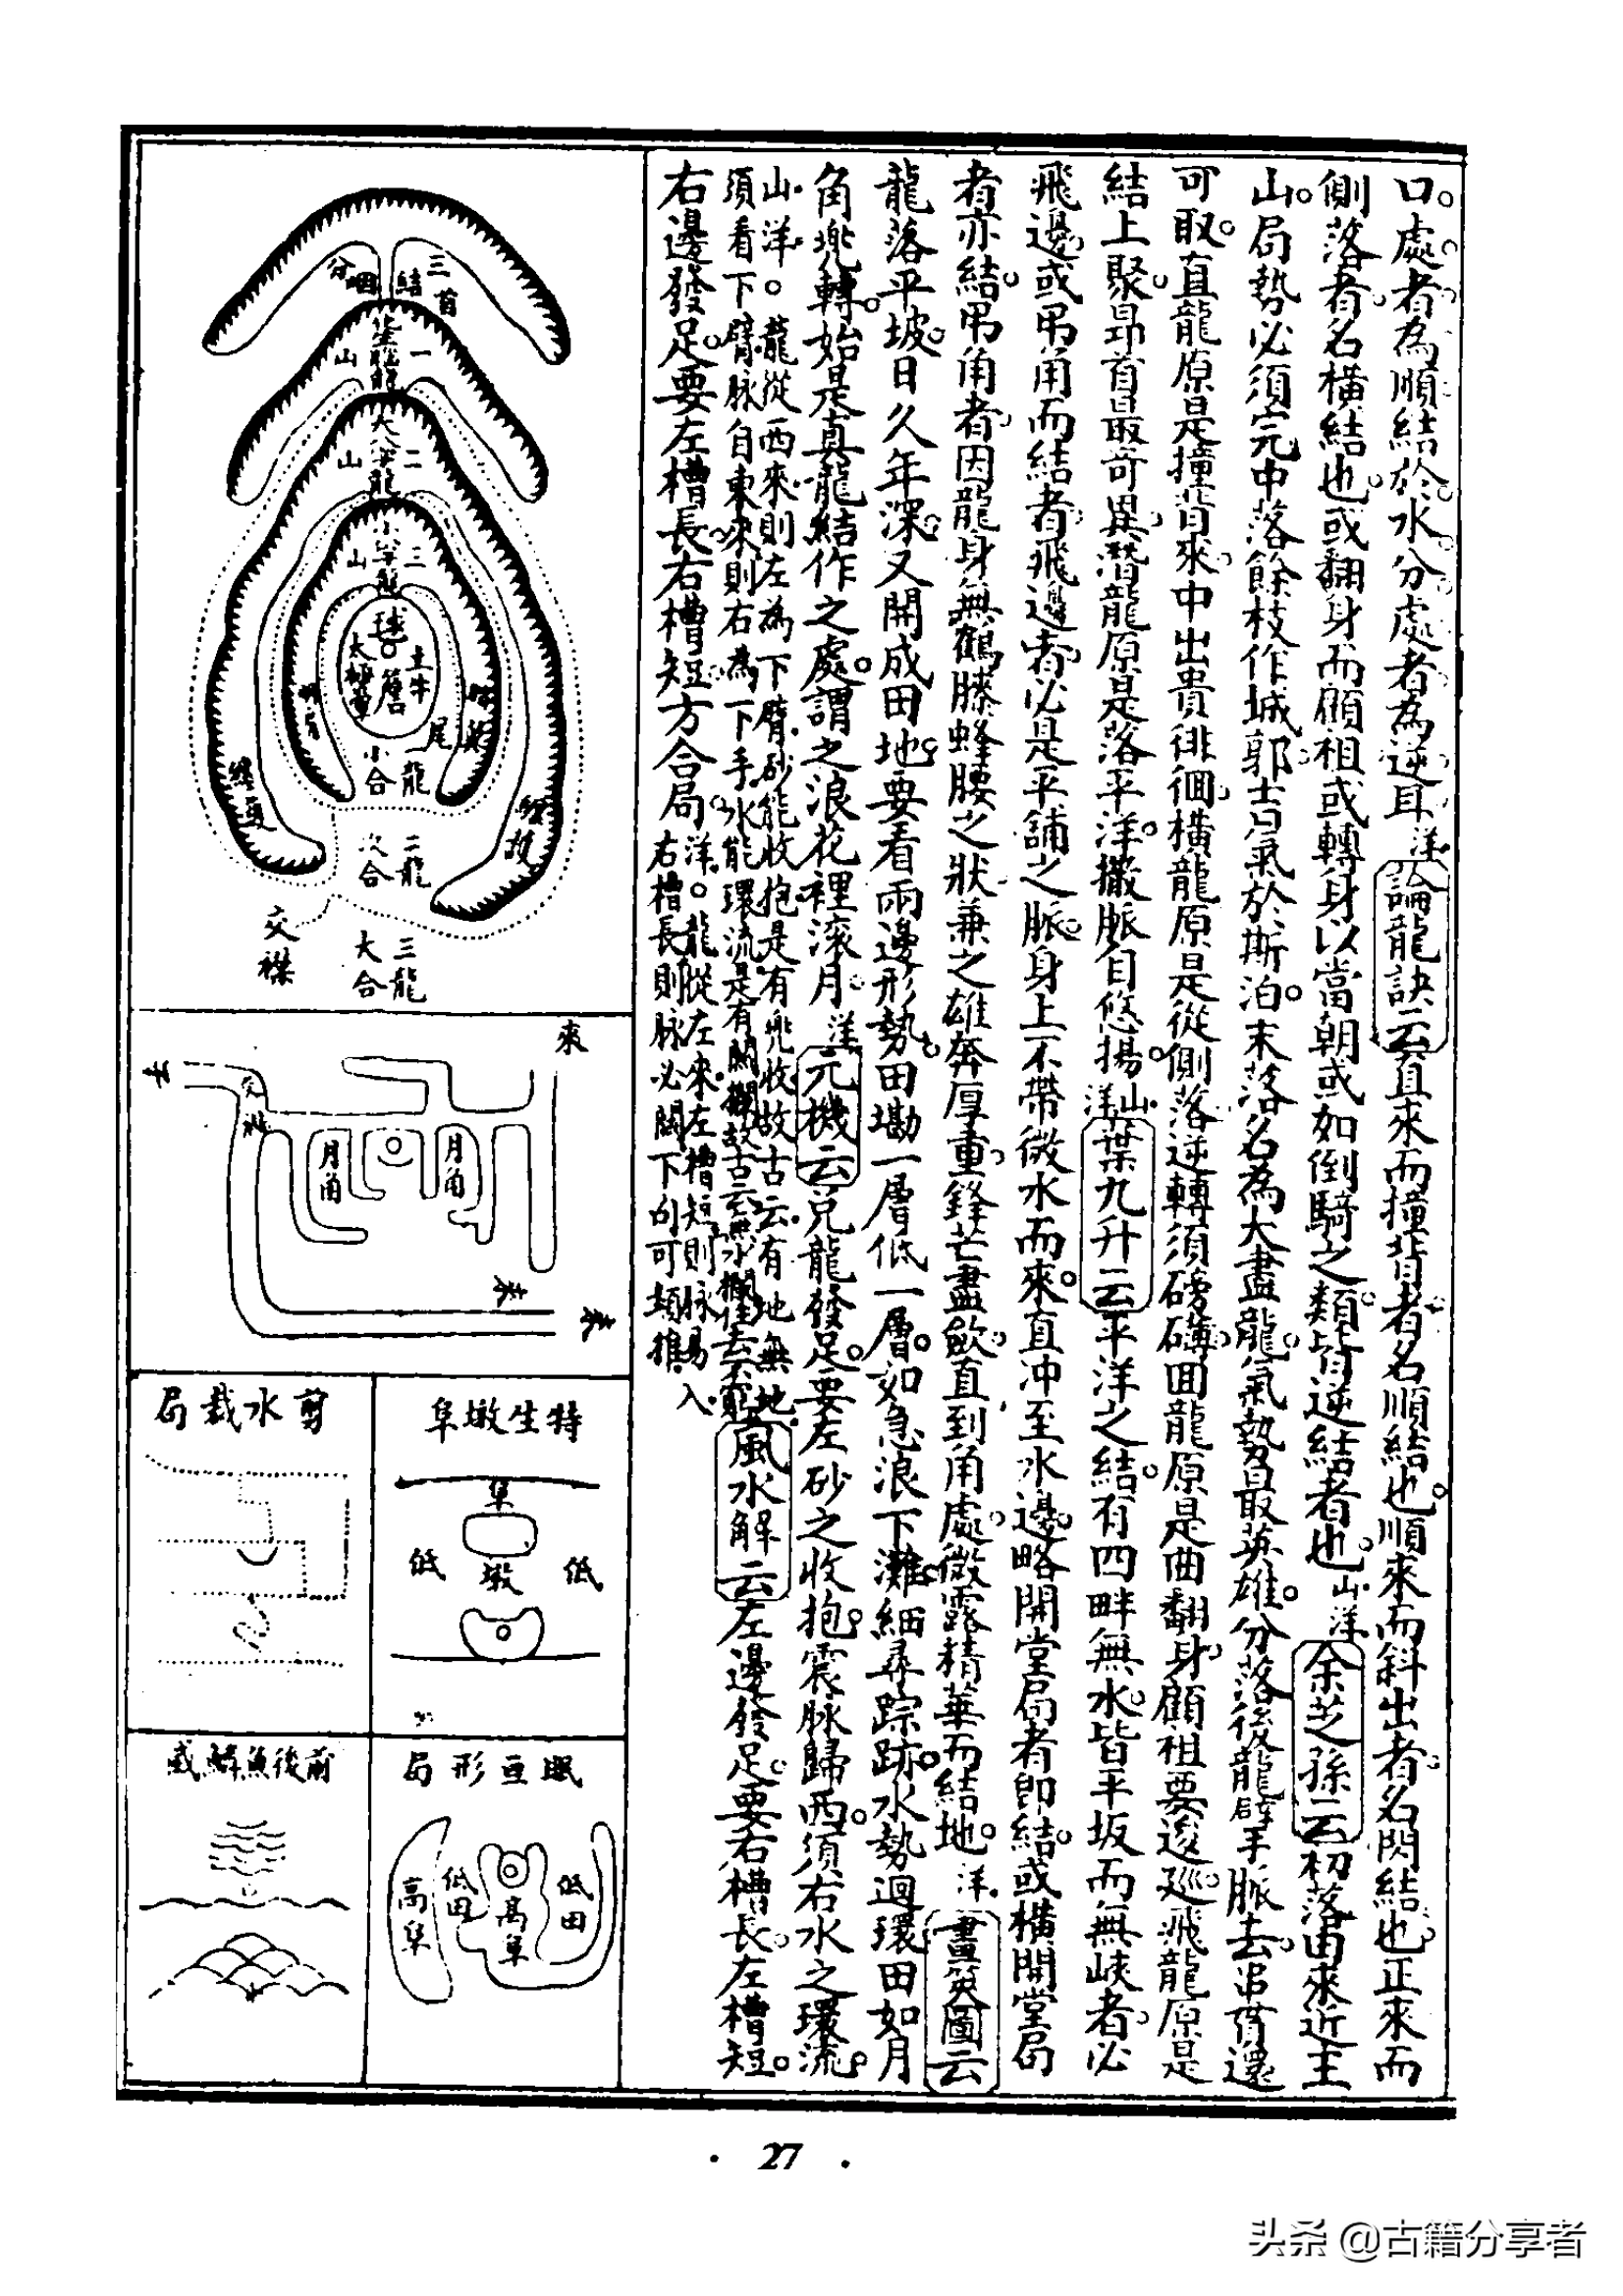 口處者為順結於水分處者為逆耳洋論龍訣云直來而撞背者名順結也順來而斜出者名閃結也正來而
側落者名橫結也或翻身而顧祖或轉身以當朝或如倒騎之類皆逆結者也山洋余芝孫云初落由來近主
山局勢必須完中落餘枝作城郭古氣於斯泊末落名為大盡龍氣勢最英雄分落後龍劈手脈去串貫還
可取直龍原是撞背來中出貴徘徊橫龍原是從側落逆轉須磅礡囬龍原是曲翻身顧祖要逡廵飛龍原是
結上聚昂首最奇異潛龍原是落平洋撒脈自悠揚山洋葉九升云平洋之結有四畔無水皆平坂而無峽者必
飛邊或吊角而結者飛邊者必是平鋪之脈身上不帶微水而來直冲至水邊略開堂局者即結或橫開堂局
者亦結吊角者因龍身無鶴膝蜂腰之狀兼之雄奔厚重鋒芒盡歛直到角處微露精華而結地洋畫筴圖云
龍落平坡日久年深又開成田地要看兩邊形勢田墈一層低一層如急浪下灘細尋踪跡水勢迴環田如月
角兠轉始是真龍結作之處謂之浪花裡滚月洋元機云兌龍發足要左砂之收抱震脉歸西須右水之環流
山洋龍從西來則左為下臂砂能收抱是有兠收故古云有地無地
須看下臂脉自東來則右為下手水能環流是有關攔故古云
風水解云左邊發足要右槽長左槽短
右邊發足要左槽長右槽短方合局
洋龍從左來左槽短則脉易入
右槽長則脉必闊下句可類推
三首
結
分
一山
二山
大八字龍
三山
毬
簷
土牛
小合
龍
尾
二龍
次合
三龍
大合
交襟
來
去
月角
月角
特生墩阜
阜
墩
低
低
剪水裁局
眠豆形局
低田
高阜
低田
高阜
前後魚鱗
· 27 ·
头条 @古籍分享者